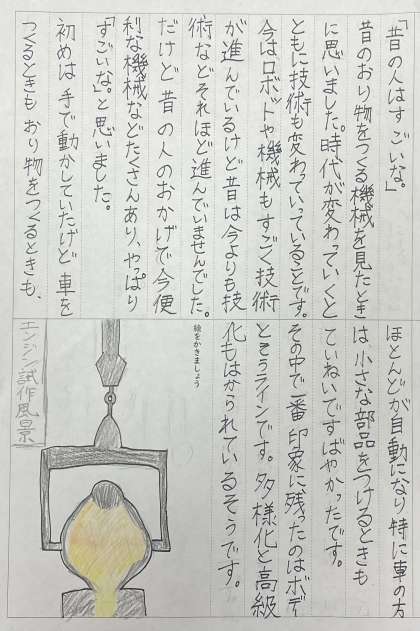 「昔の人はすごいな。」
昔のおり物をつくる機械を見たとき
に思いました。時代が変わっていくと
ともに技術も変わっていっていることです。
今はロボットや機械もすごく技術
が進んでいるけど昔は今よりも技
術などそれほど進んでいませんでした。
だけど昔の人のおかげで今便
利な機械などたくさんあり、やっぱり
「すごいな。」と思いました。
初めは手で動かしていたけど車を
つくるときもおり物をつくるときも、
ほとんどが自動になり特に車の方
は、小さな部品をつけるときも
ていねいですばやかったです。
その中で一番印象に残ったのはボデー
とそうラインです。多様化と高級
化もはかられているそうです。
絵をかきましょう
エンジン試作風景